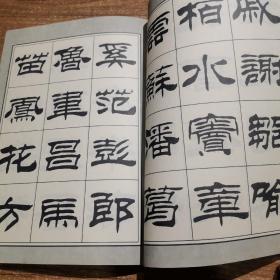 戚謝鄒喻
柏水竇章
雲蘇潘葛
奚范彭郎
魯韋昌馬
苗鳳花方